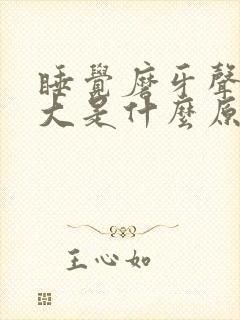 睡覺磨牙聲
大是什麼原
王心如